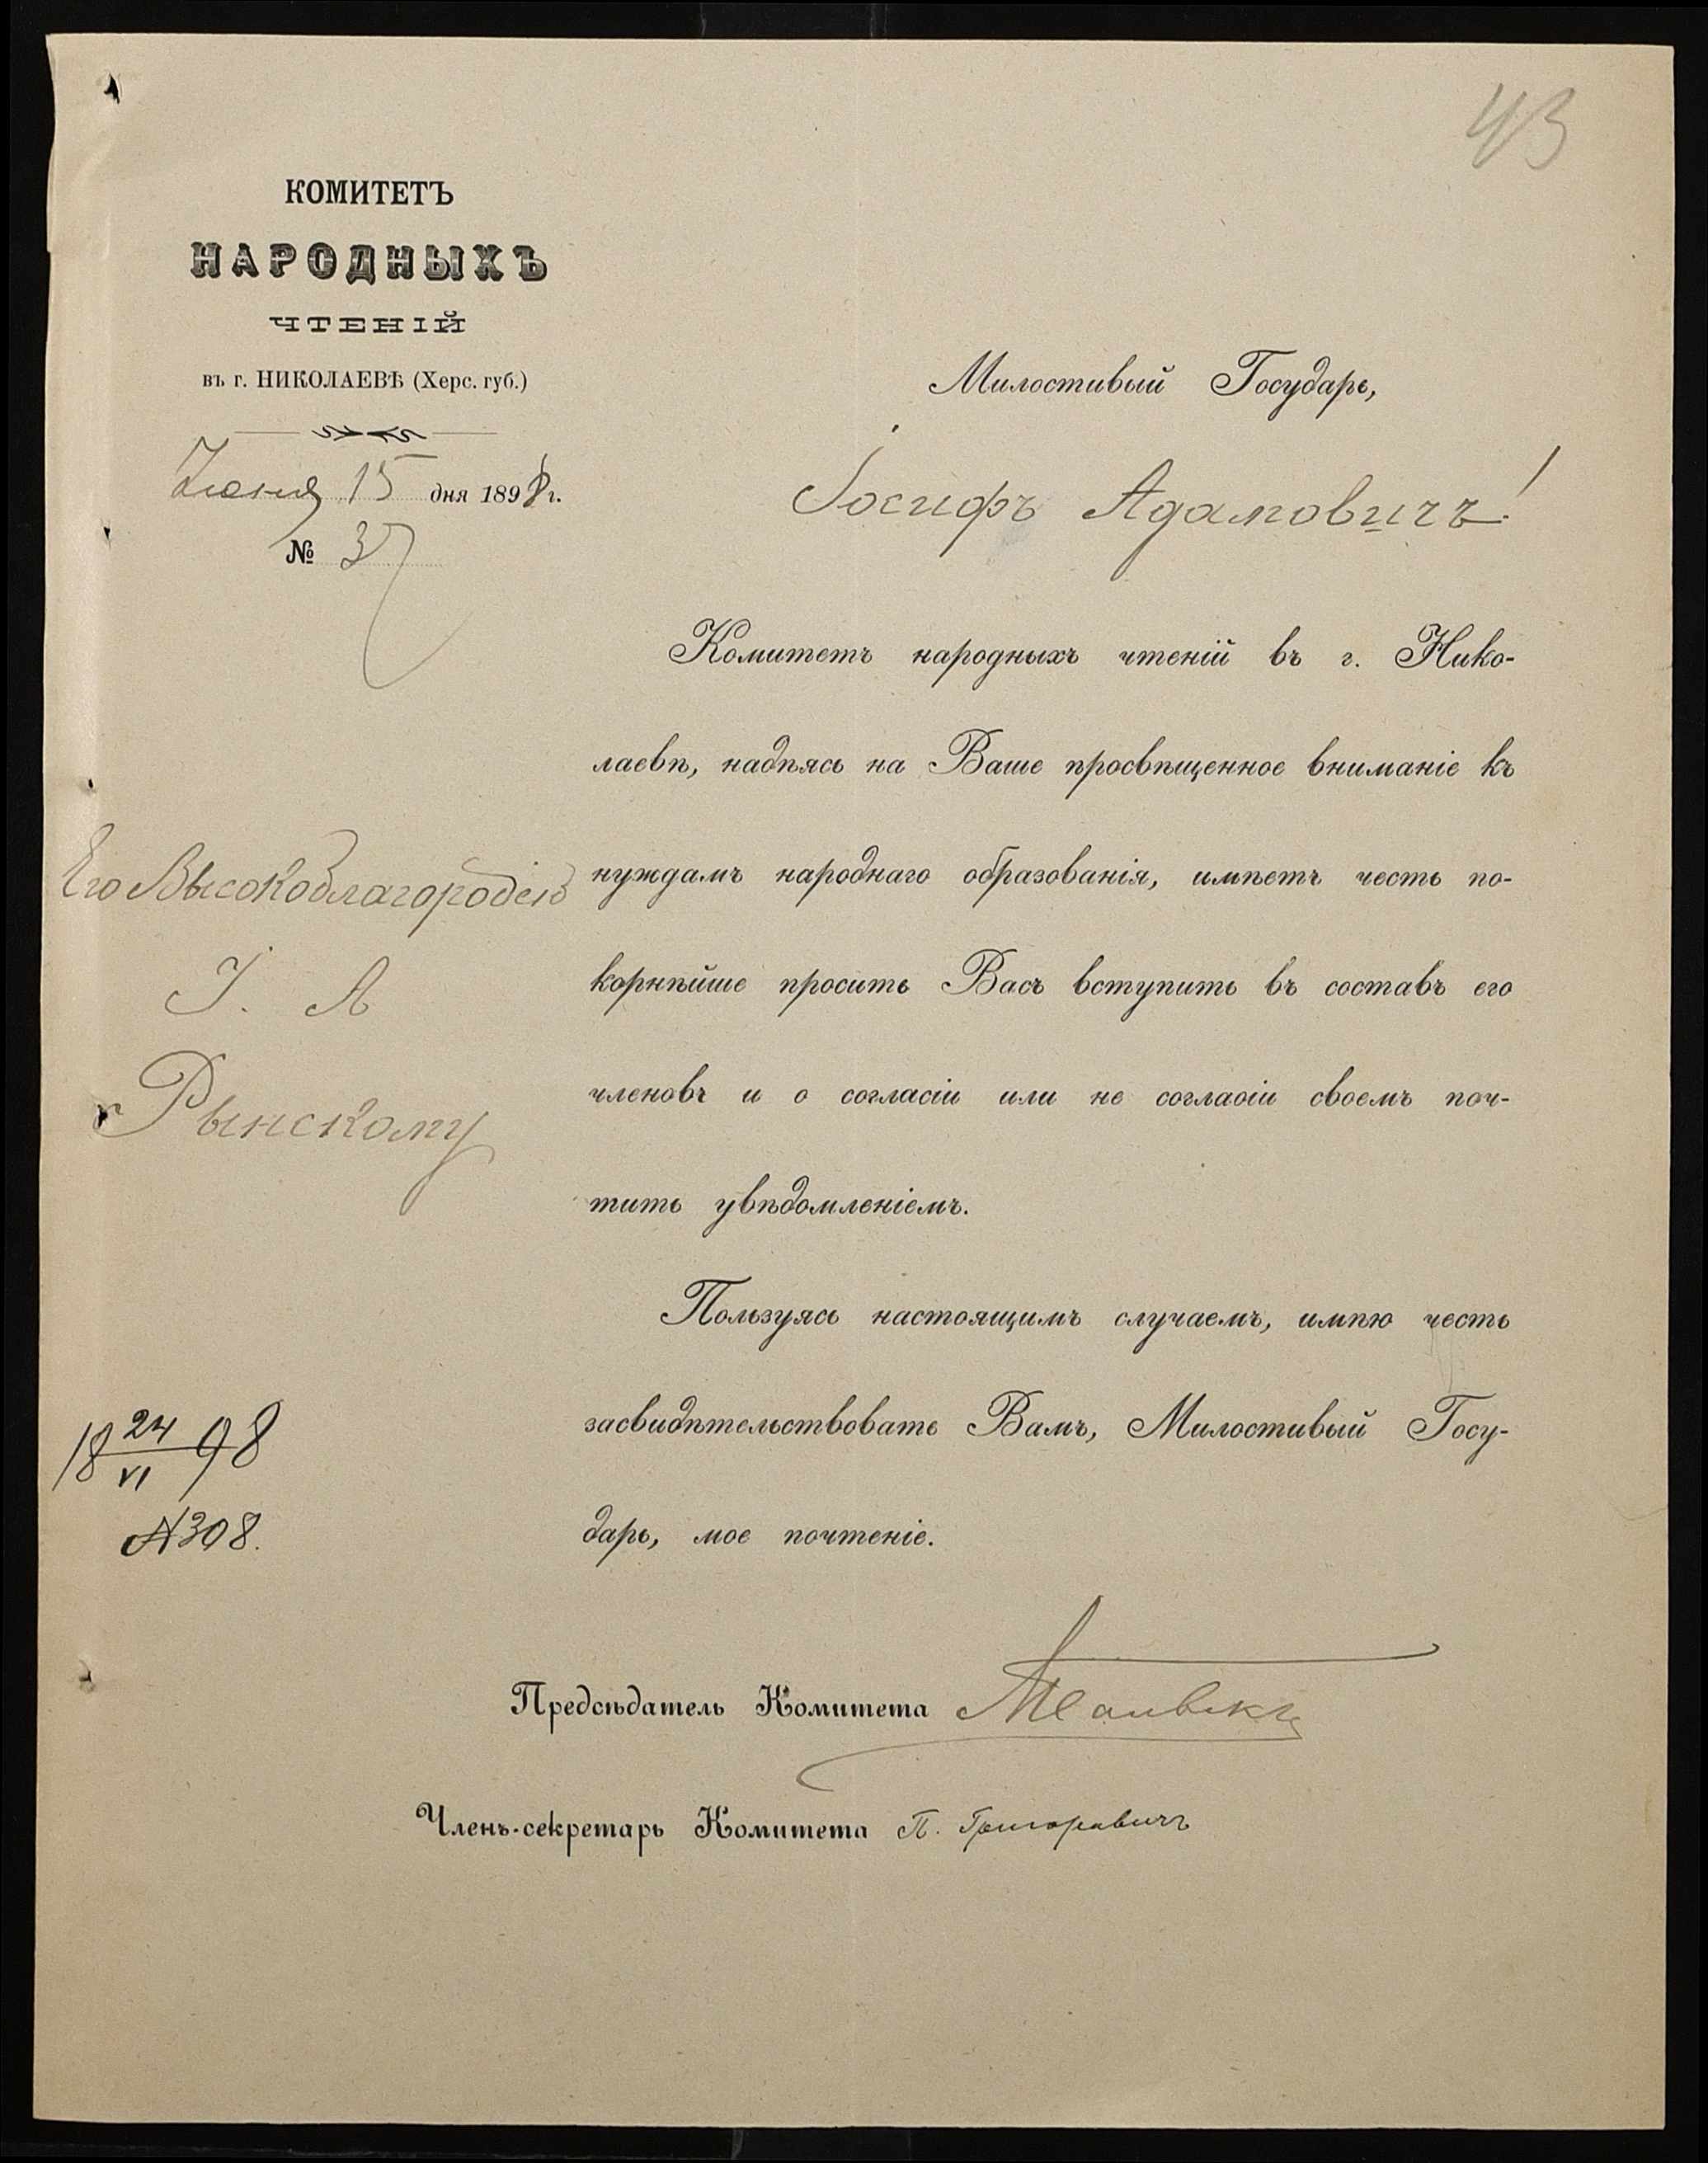 43
КОМИТЕТЪ
НАРОДНЫХЪ
ЧТЕНІЙ
въ г. НИКОЛАЕВѢ (Херс. губ.)
Іюня 15 дня 1898 г.
№ 37
Милостивый Государь,
Іосифъ Адамовичъ!
Комитетъ народныхъ чтеній въ г. Нико-
лаевѣ, надѣясь на Ваше просвѣщенное вниманіе къ
нуждамъ народнаго образованія, имѣетъ честь по-
корнѣйше просить Васъ вступить въ составъ его
членовъ и о согласіи или не соглаоіи своемъ поч-
тить увѣдомленіемъ.
Пользуясь настоящимъ случаемъ, имѣю честь
засвидѣтельствовать Вамъ, Милостивый Госу-
дарь, мое почтеніе.
Его Высокоблагородію
І. А
Рынскому
18 24/VI 98
№308.
Предсѣдатель Комитета
Членъ-секретарь Комитета П. Григоровичъ